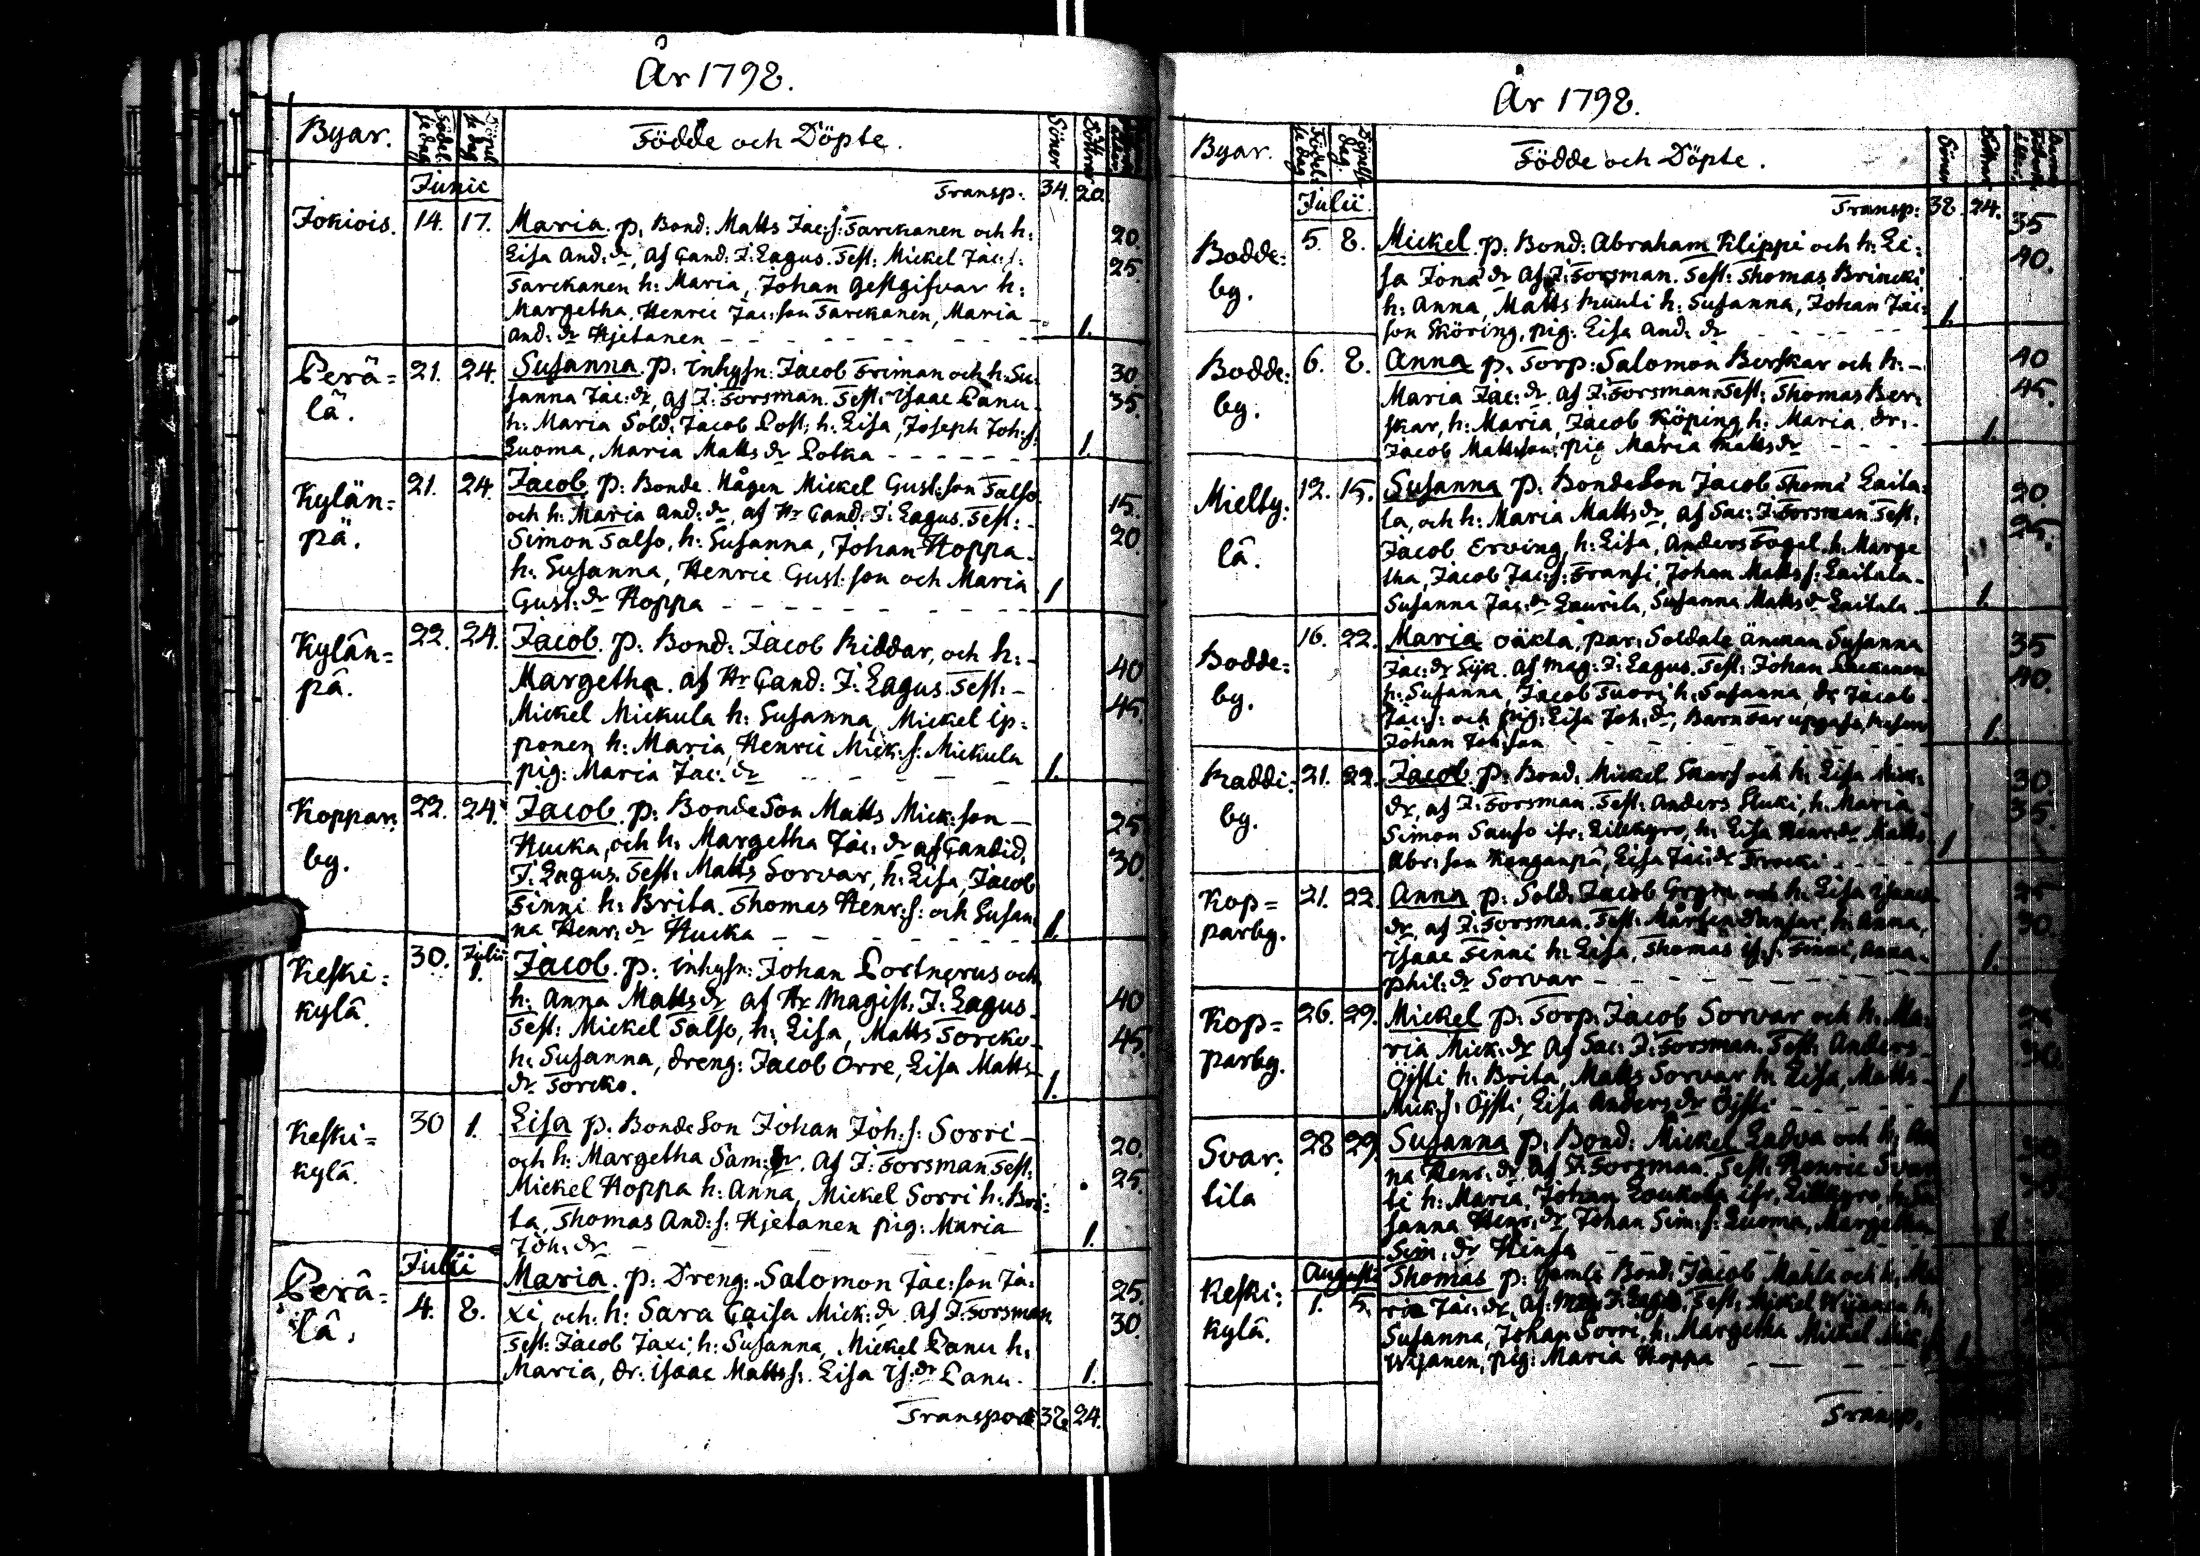 År 1798.
Byar.
Födde och Döpte.
Söner
Döttrar
Junii
Transp: 34. 20.
Jokiois. 14. 17. Maria. p. Bond: Matts Jac:s: Tarckanen och h: 20.
Lisa And: dr, af Cand: J: Lagus. Test: Mickel Jac: s: 25
Tarckanen h: Maria, Johan Gestgifvar h:
Margetha. Henric Jac: son Tarckanen, Maria
And: dr Hjetanen 1.
Perä= 21. 24. Susanna. p: inhysn: Jacob Friman och h: Su: 30.
lä. sanna Jac: dr, af J: Forsman. Test: Isaac Panu 35.
h: Maria Sold: Jacob Post; h: Lisa, Joseph Joh: s:
Luoma, Maria Matts dr Polka 1.
Kylän= 21. 24. Jacob. p: Bonde Mågen Mickel Gust: son Talso 15.
pä. och h: Maria And: dr, af Hr Cand: J: Lagus. Test: 20.
Simon Talso, h: Susanna, Johan Hoppa
h: Susanna, Henric Gust: son och Maria
Gust: dr Hoppa 1
Kylän= 22. 24. Jacob. p: Bond: Jacob Riddar, och h: 40
pä. Margetha. af Hr Cand: J: Lagus. Test: 45.
Mickel Mickula h: Susanna, Mickel Ip:
ponen h: Maria, Henric Mick: s: Mickula
pig: Maria Jac: dr 1.
Koppar: 22. 24. Jacob. p: Bonde Son Matts Mick: son 25
by. Hucka, och h: Margetha Jac: dr af Candid. 30.
J: Lagus. Test: Matts Sorvar, h: Lisa, Jacob
Finni h: Brita. Thomas Henr: s: och Susan
na Henr: dr Hucka 1.
Keski: 30. Julii 1. Jacob. p: inhysn: Johan Portnerus och
kylä. h: Anna Matts dr af Hr Magist. J: Lagus. 40
Test: Mickel Talso, h: Lisa, Matts Torcko 45.
h: Susanna, dreng: Jacob Orre, Lisa Matts
dr Torcko. 1.
Keski= 30 1. Lisa p: Bonde Son Johan Joh: s: Sorri
kylä. och h: Margetha Sam: dr. af J: Forsman Test: 20.
Mickel Hoppa h: Anna, Mickel Sorri h: Bri: 25.
ta, Thomas And: s: Hjetanen pig: Maria
Joh: dr 1.
Julii
Perä= 4. 8. Maria. p: Dreng: Salomon Jac: son Ja: 25.
lä. xi, och h: Sara Caisa Mick: dr. af J: Forsman 30.
Test: Jacob Jaxi, h: Susanna, Mickel Panu h:
Maria, dr: Isaac Matts s: Lisa Is: dr Panu. 1.
Transport 38. 24.
År 1798.
Byar.
Födde och Döpte.
Söner
Julii
Transp: 38. 24.
Bodde: 5. 8. Mickel p: Bond: Abraham Klippi och h: Li: 35
by. sa Jona dr af J: Forsman. Test: Thomas Brincki 40.
h: Anna, Matts Kuuli h: Susanna, Johan Jac:
son Sköring, pig: Lisa And: dr 1.
Bodde: 6. 8. Anna p: Torp: Salomon Berskar och h: 40
by. Maria Jac: dr. af J: Forsman. Test: Thomas Ber: 45.
skar, h: Maria, Jacob Köping h: Maria, dr:
Jacob Mattsson, pig Maria Matts dr 1.
Mielby: 12. 15. Susanna p: Bonde Son Jacob Thoma Laila: 20.
lä. la, och h: Maria Matts dr, af Sac: J: Forsman Test: 25.
Jacob Erving, h: Lisa, Anders Fogel, h: Marge
tha, Jacob Jac: s: Fransi, Johan Matts s: Laitala
Susanna Jac: dr Laurila, Susanna Matts dr Laitala 1.
Bodde: 16. 22. Maria oäkta, par: Soldate änckan Susanna 35
by. Jac: dr Syk. af Mag: J: Lagus. Test: Johan 40.
h: Susanna, Jacob Tuori h: Susanna, dr Jacob
Jac: s: och pig: Lisa Joh: dr, Barn Far
Johan Joh: son 1.
Raddi: 21. 22. Jacob p: Bond: Mickel Skarf och h: Lisa Mick: 30.
by. dr, af J: Forsman. Test: Anders Sluki, h: Maria 35.
Simon Saufo ifr: Lillkyro, h: Lisa Henr: dr Matts
Abr: son Kanganpä, Lisa Jac: dr 1
Kop= 21. 22. Anna p: Sold: Jacob och h: Lisa Isaacs 25
parby. dr, af J: Forsman. Test: Mårten Dunsar, h: Anna, 30.
Isaac Finni h: Lisa, Thomas Is: s: Finni, Anna
Phil: dr Sorvar 1.
Kop= 26. 29. Mickel p: Torp: Jacob Sorvar och h: Ma:
parby. ria Mick: dr af Sac: J: Forsman. Test: Anders
Öjsti h: Brita, Matts Sorvar h: Lisa, Matts
Mick: s: Öjsti, Lisa Anders dr Öjsti 1
Svar: 28 29. Susanna p: Bond: Mickel Ladva och h: An
tila na Henr: dr, af J: Forsman. Test: Henric Svar
ti h: Maria, Johan Loukola ifr. Lillkyro, h: Su
sanna Henr: dr, Johan Sim: s: Luoma, Margetha
Sim: dr Hinsa 1
Augusti
Keski: 1. 5. Thomas p: Gamla Bond: Jacob Mahla och h: Ma
kylä. ria Jac: dr, af Mag J: Lagus. Test: Mickel Wijanen h:
Susanna, Johan Sorri, h: Margetha Mickel Mick
Wijanen, pig: Maria Hoppa 1
Transp.